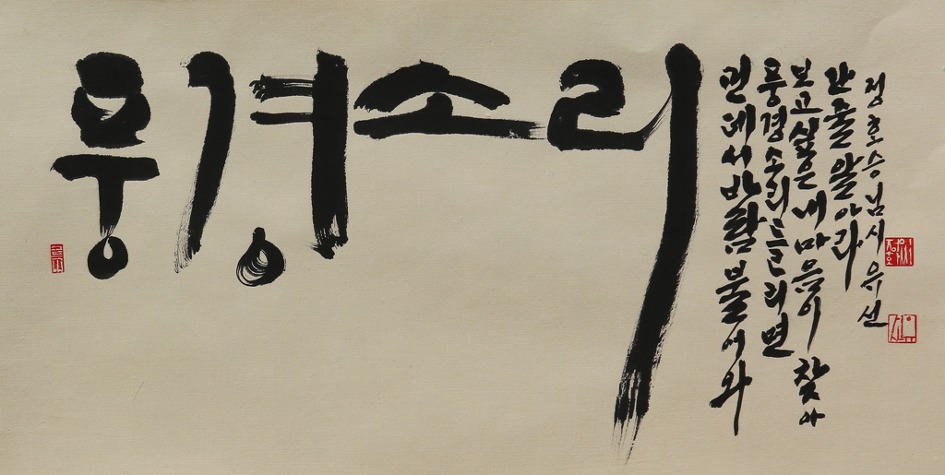 풍경소리
먼데서 바람 불어와
풍경소리 들리면
보고싶은 내 마음이 찾아
간 줄 알아라
정호승님 시 유선